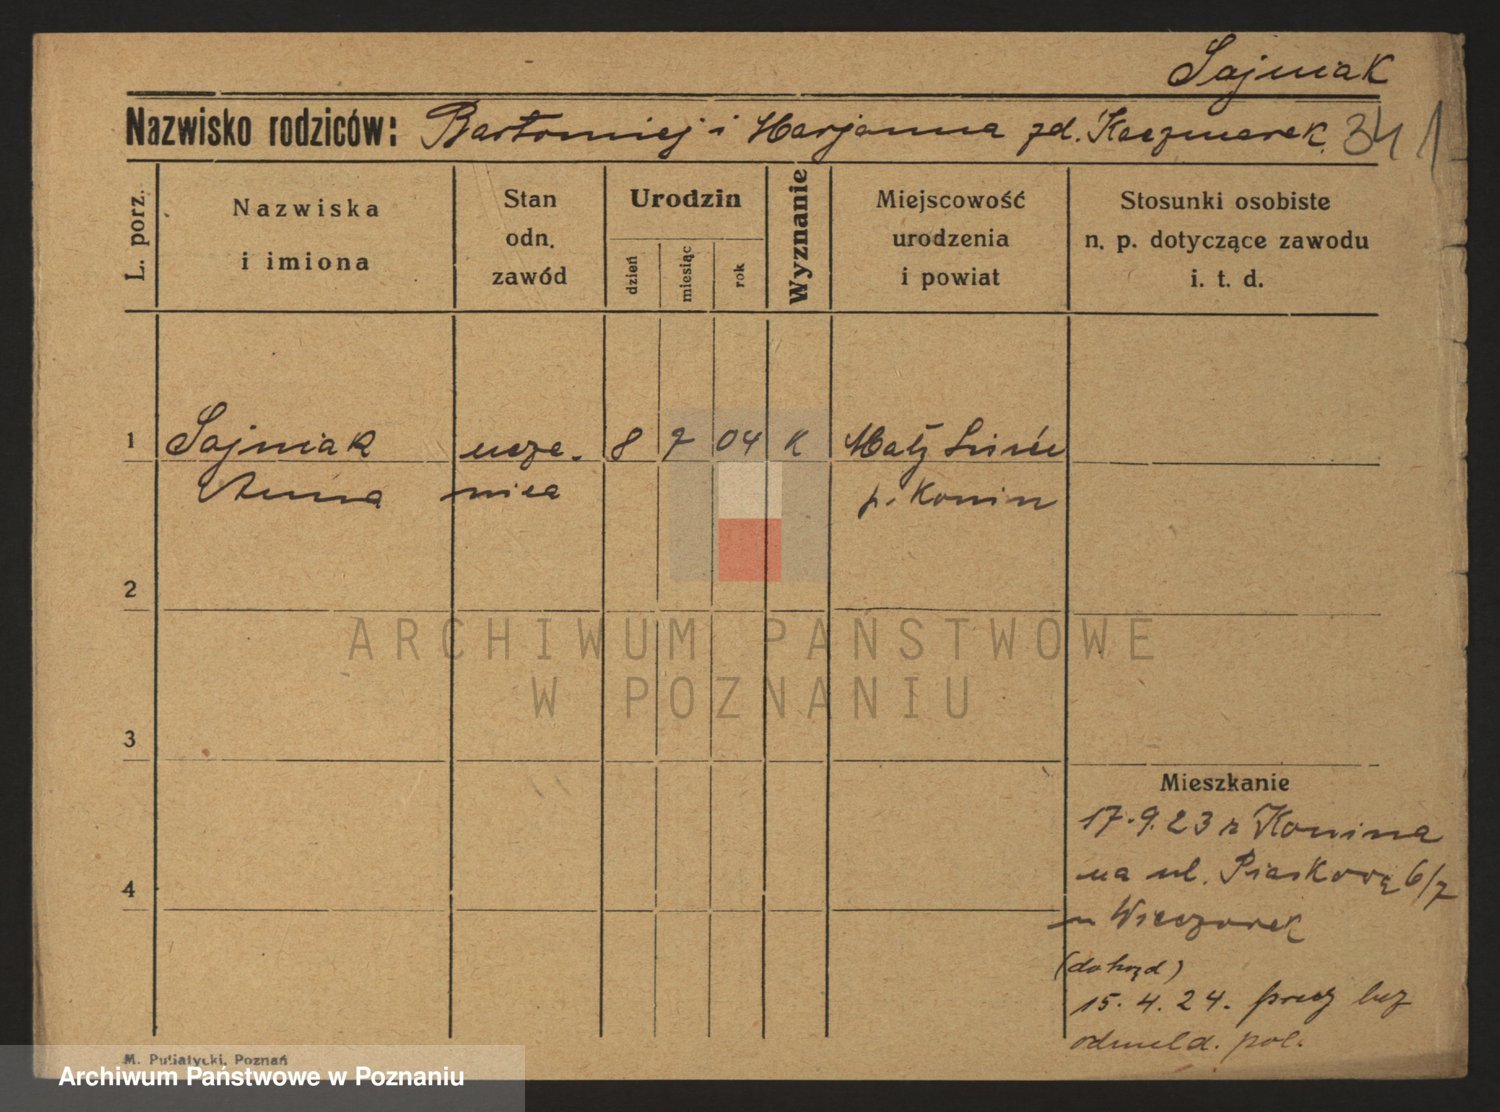 Sajniak
Nazwisko rodziców: Bartomiej i Marjanna zd. Kaczmarek 34 1
L. porz.
Nazwiska
i imiona
Stan
odn.
zawód
Urodzin
dzień
miesiąc
rok
Wyznanie
Miejscowość
urodzenia
i powiat
Stosunki osobiste
n. p. dotyczące zawodu
i. t. d.
1 Sajniak ucze- 8 7 04 K Mały
Anna nica p. Konin
2
ARCHIWUM PAŃSTWOWE
W POZNANIU
3
Mieszkanie
17.9.23 z Konina
na ul. Piaskową 6/7
Wieczorek
4
15.4.24. precz bez
odmeld. pol.
M. Putiatycki, Poznań
Archiwum Państwowe w Poznaniu